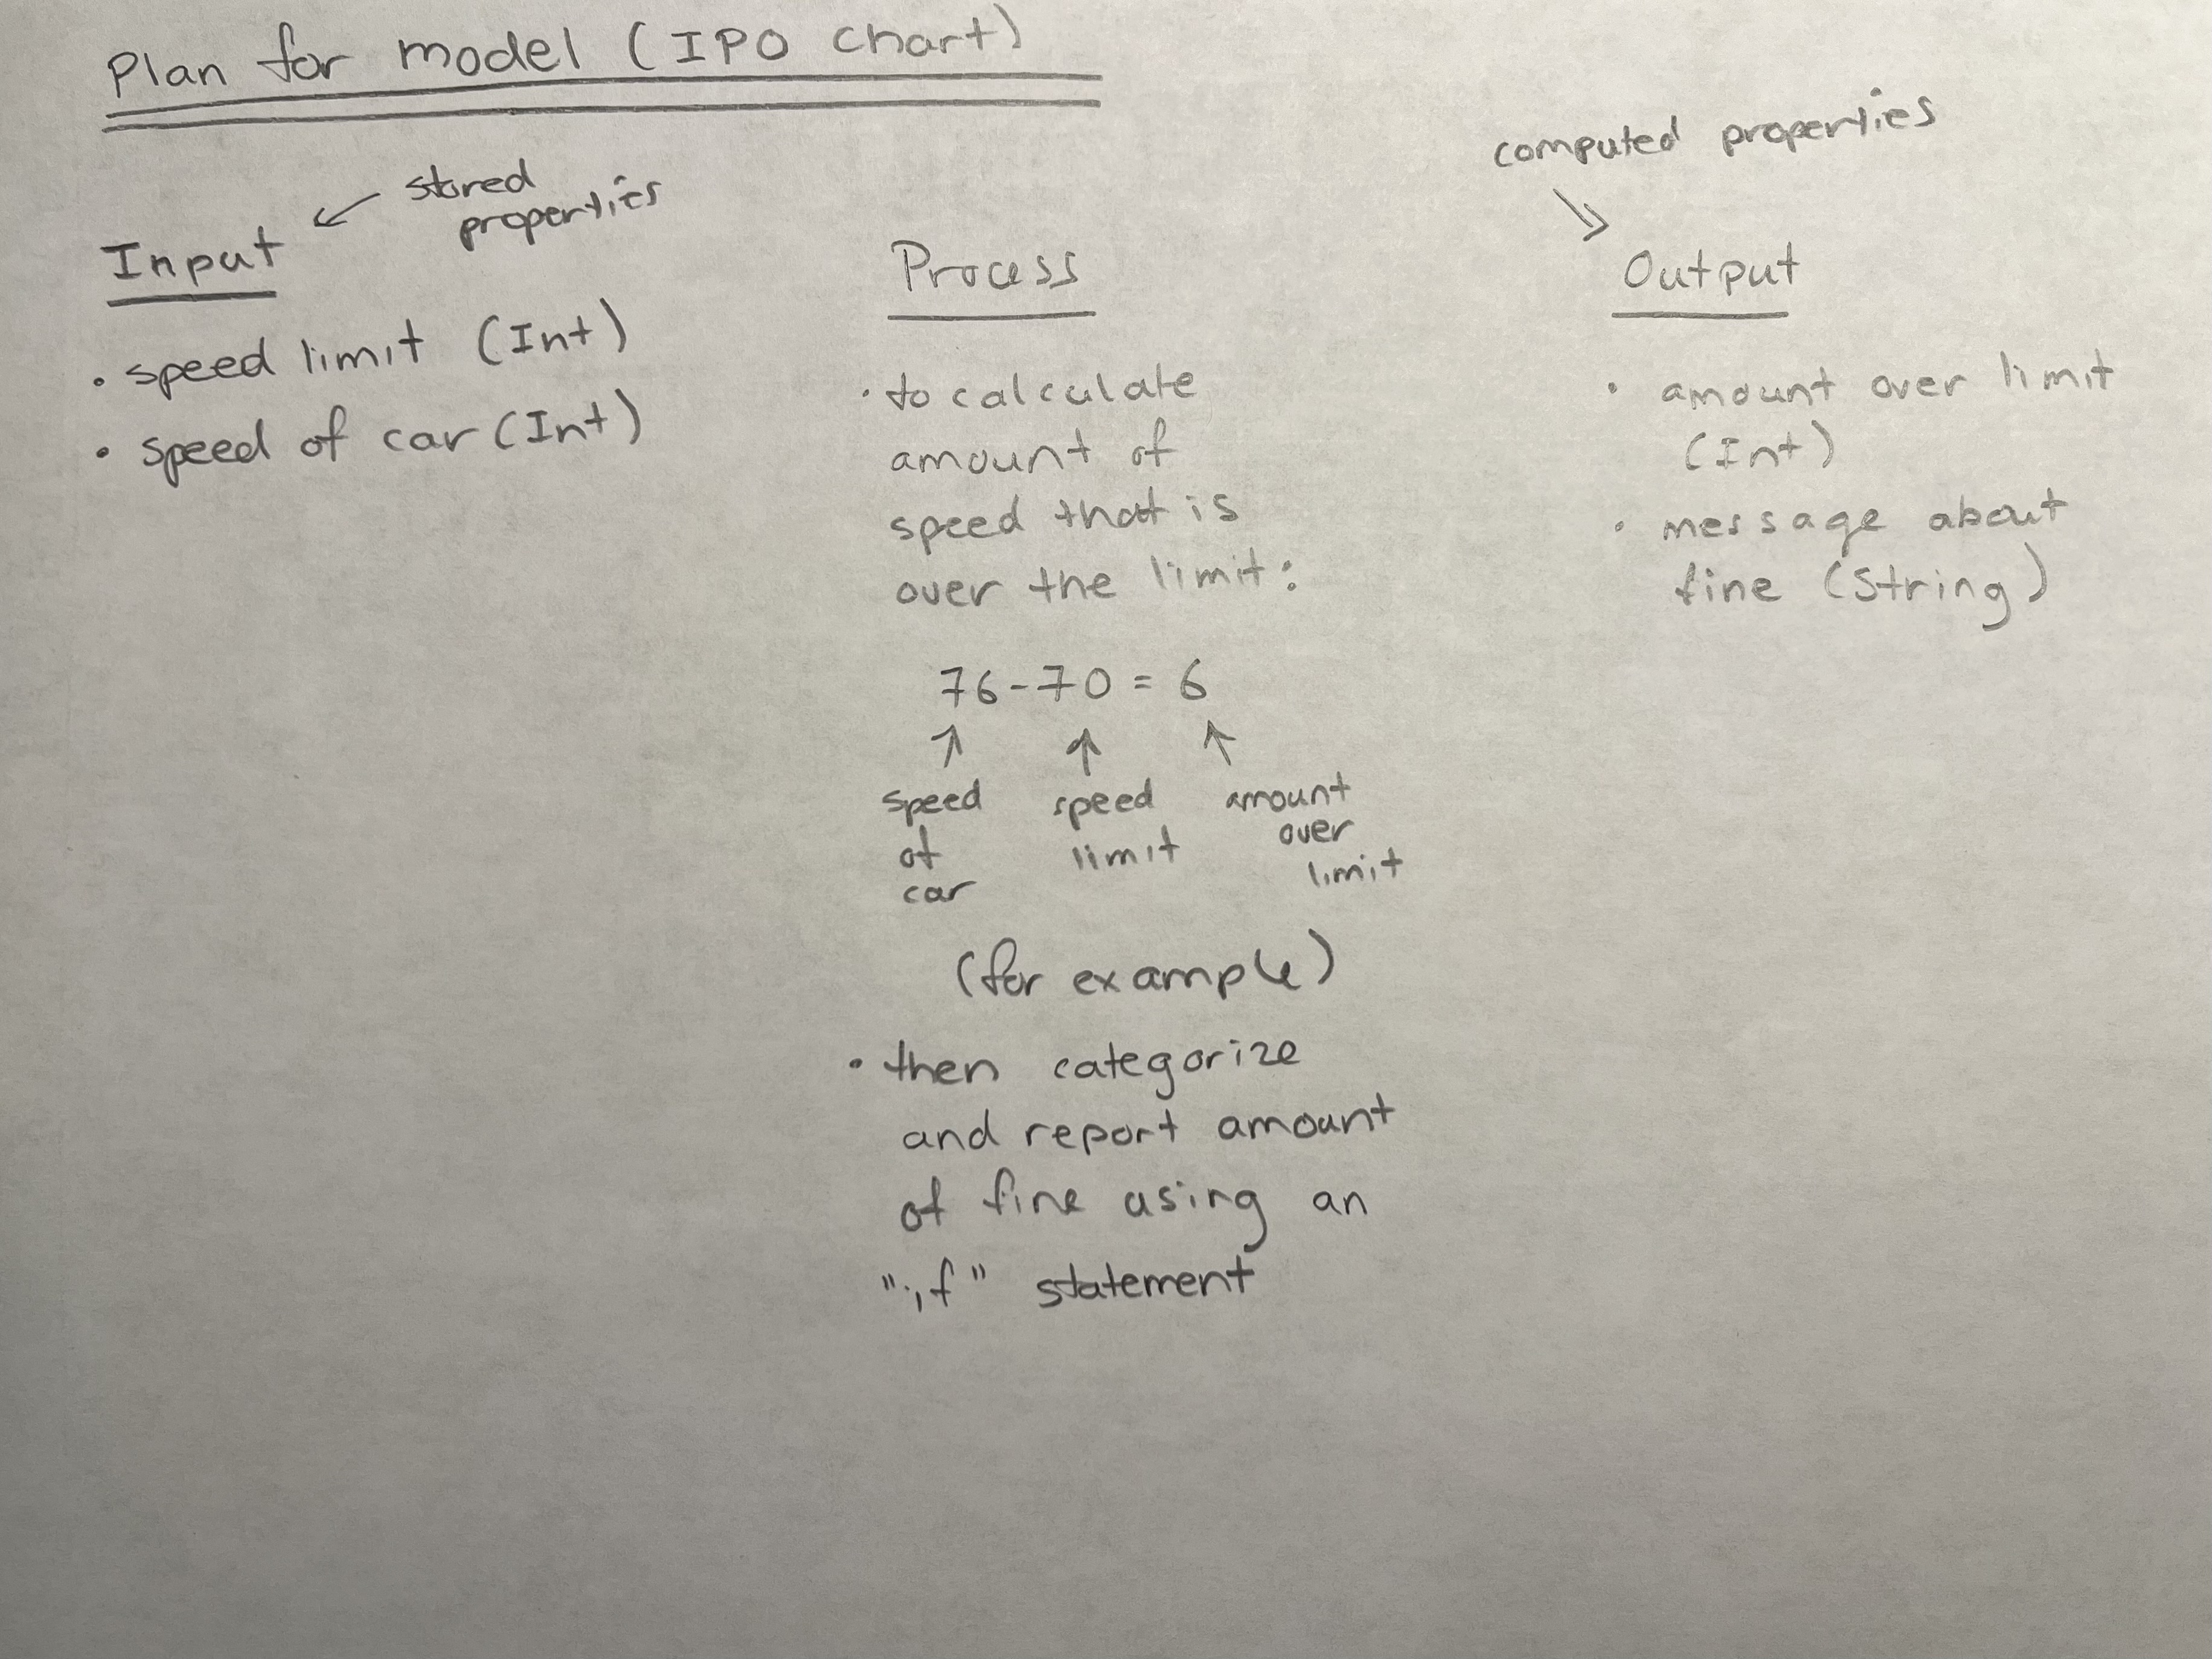 Plan for model (IPO chart)
stored
properties
Input
• speed limit (Int)
• speed of car (Int)
Process
• to calculate
amount of
speed that is
over the limit:
76 - 70 = 6
speed
of
car
speed
limit
amount
over
limit
(for example)
• then categorize
and report amount
of fine using an
"if" statement
computed properties
Output
• amount over limit
(Int)
• message about
fine (String)